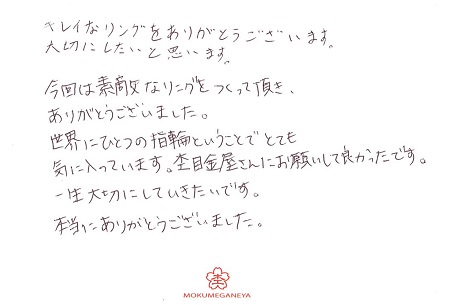 キレイなリングをありがとうございます。
大切にしたいと思います。
今回は素敵なリングをつくって頂き、
ありがとうございました。
世界にひとつの指輪ということでとても
気に入っています。杢目金屋さんにお願いして良かったです。
一生大切にしていきたいです。
本当にありがとうございました。
MOKUMEGANEYA